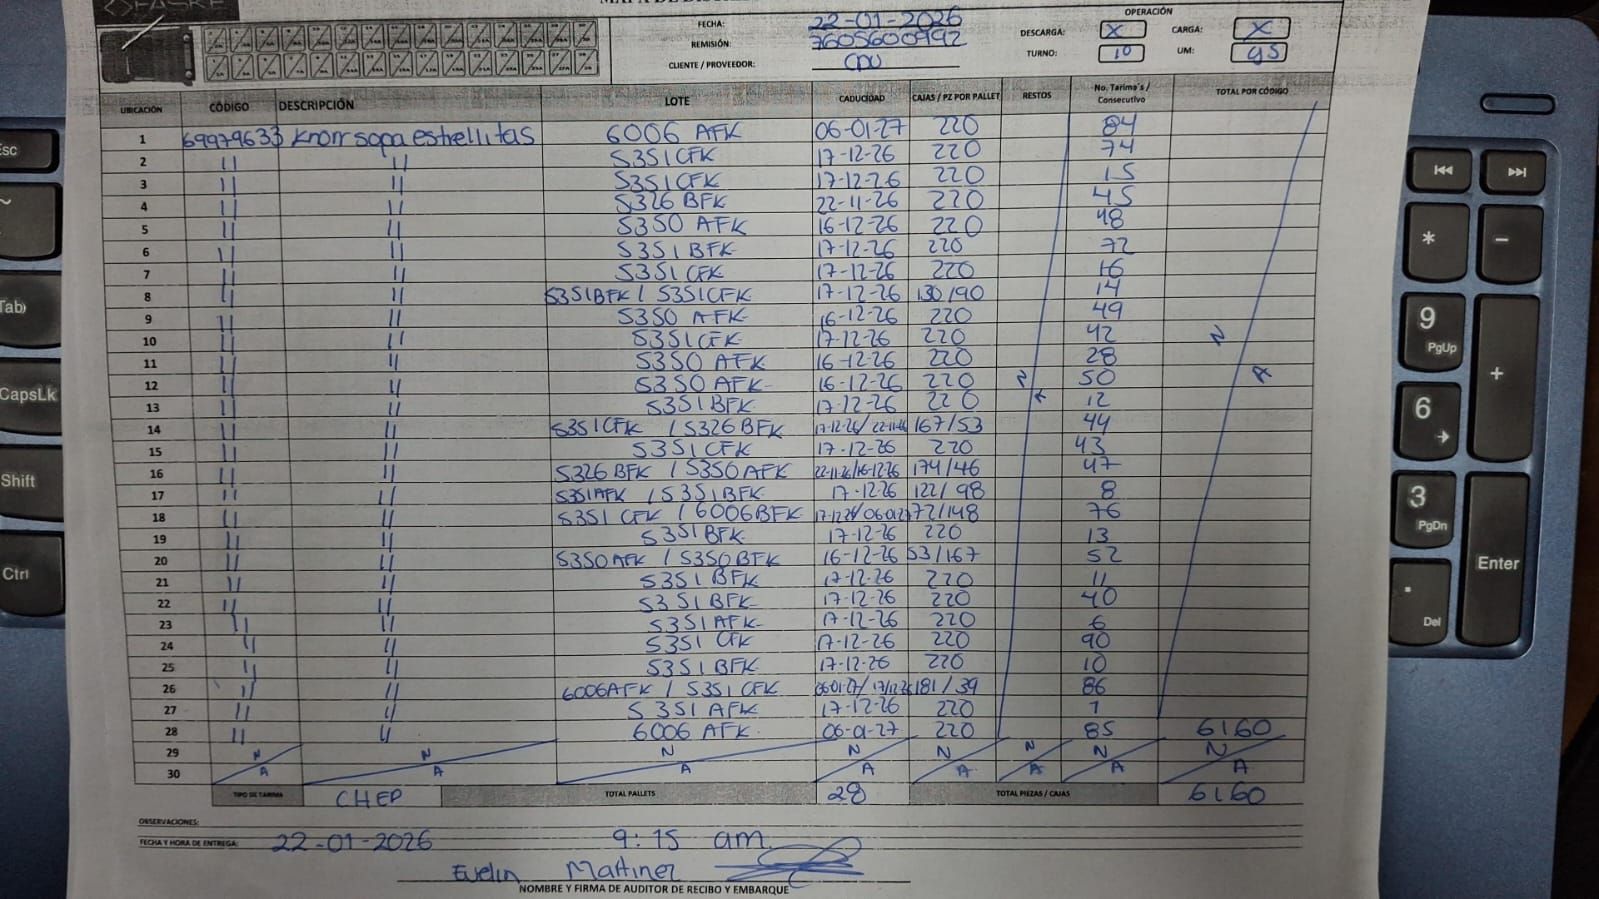 FECHA: 22-01-2026
REMISIÓN: 7605600992
CLIENTE / PROVEEDOR: CDU
OPERACIÓN
DESCARGA: X CARGA: X
TURNO: 10 UM: 95
UBICACIÓN CÓDIGO DESCRIPCIÓN LOTE CADUCIDAD CAJAS / PZ POR PALLET RESTOS No. Tarima's / Consecutivo TOTAL POR CÓDIGO
1 69979633 Knorr sopa estrellitas 6006 AFK 06-01-27 220 84
2 11 11 5351 CFK 17-12-26 220 74
3 11 11 5351 CFK 17-12-26 220 15
4 11 11 5326 BFK 22-11-26 220 45
5 11 11 5350 AFK 16-12-26 220 48
6 11 11 5351 BFK 17-12-26 220 72
7 11 11 5351 CFK 17-12-26 220 16
8 11 11 5351BFK / 5351CFK 17-12-26 130/90 14
9 11 11 5350 AFK 16-12-26 220 49
10 11 11 5351 CFK 17-12-26 220 42
11 11 11 5350 AFK 16-12-26 220 28
12 11 11 5350 AFK 16-12-26 220 50
13 11 11 5351 BFK 17-12-26 220 12
14 11 11 5351 CFK / 5326 BFK 17-12-26/ 22-11-26 167/53 44
15 11 11 5351 CFK 17-12-26 220 43
16 11 11 5326 BFK / 5350 AFK 22-11-26/16-12-26 174/46 47
17 11 11 5351AFK / 5351BFK 17-12-26 122/98 8
18 11 11 5351 CFK / 6006BFK 17-12-26/ 06-01-27 72/148 76
19 11 11 5351 BFK 17-12-26 220 13
20 11 11 5350AFK / 5350BFK 16-12-26 53/167 52
21 11 11 5351 BFK 17-12-26 220 11
22 11 11 5351 BFK 17-12-26 220 40
23 11 11 5351 AFK 17-12-26 220 6
24 11 11 5351 CFK 17-12-26 220 90
25 11 11 5351 BFK 17-12-26 220 10
26 11 11 6006AFK / 5351 CFK 06-01-27/ 17/12-26 181/39 86
27 11 11 5351 AFK 17-12-26 220 7
28 11 11 6006 AFK 06-01-27 220 85 6160
29 N N N N N N N N
30 A A A A A A A A
N A
N A
TIPO DE TARIMA CHEP TOTAL PALLETS 28 TOTAL PIEZAS / CAJAS 6160
OBSERVACIONES:
FECHA Y HORA DE ENTREGA: 22-01-2026 9:15 am.
Evelin Martinez
NOMBRE Y FIRMA DE AUDITOR DE RECIBO Y EMBARQUE
Esc
Tab
CapsLk
Shift
Ctrl
* -
9 PgUp
+
6
3 PgDn
Enter
. Del